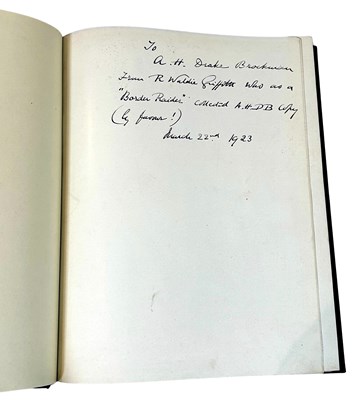 To
A. H. Drake Brockman
From R Waldie Griffith who as a
"Border Raider" collected A.H.D.B Copy
(by favour!)
March 22nd 1923